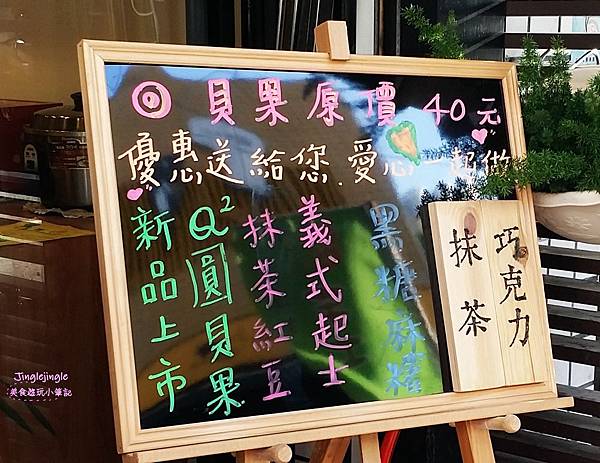 ◎貝果原價40元
優惠送給您.愛心一起做
新品上市
Q²圓貝果
抹茶紅豆
義式起士
黑糖麻糬
抹茶
巧克力
Jinglejingle
美食遊玩小筆記